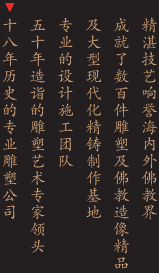 精湛技艺响誉海内外佛教界
成就了数百件雕塑及佛教造像精品
及大型现代化精铸制作基地
专业的设计施工团队
五十年造诣的雕塑艺术专家领头
十八年历史的专业雕塑公司